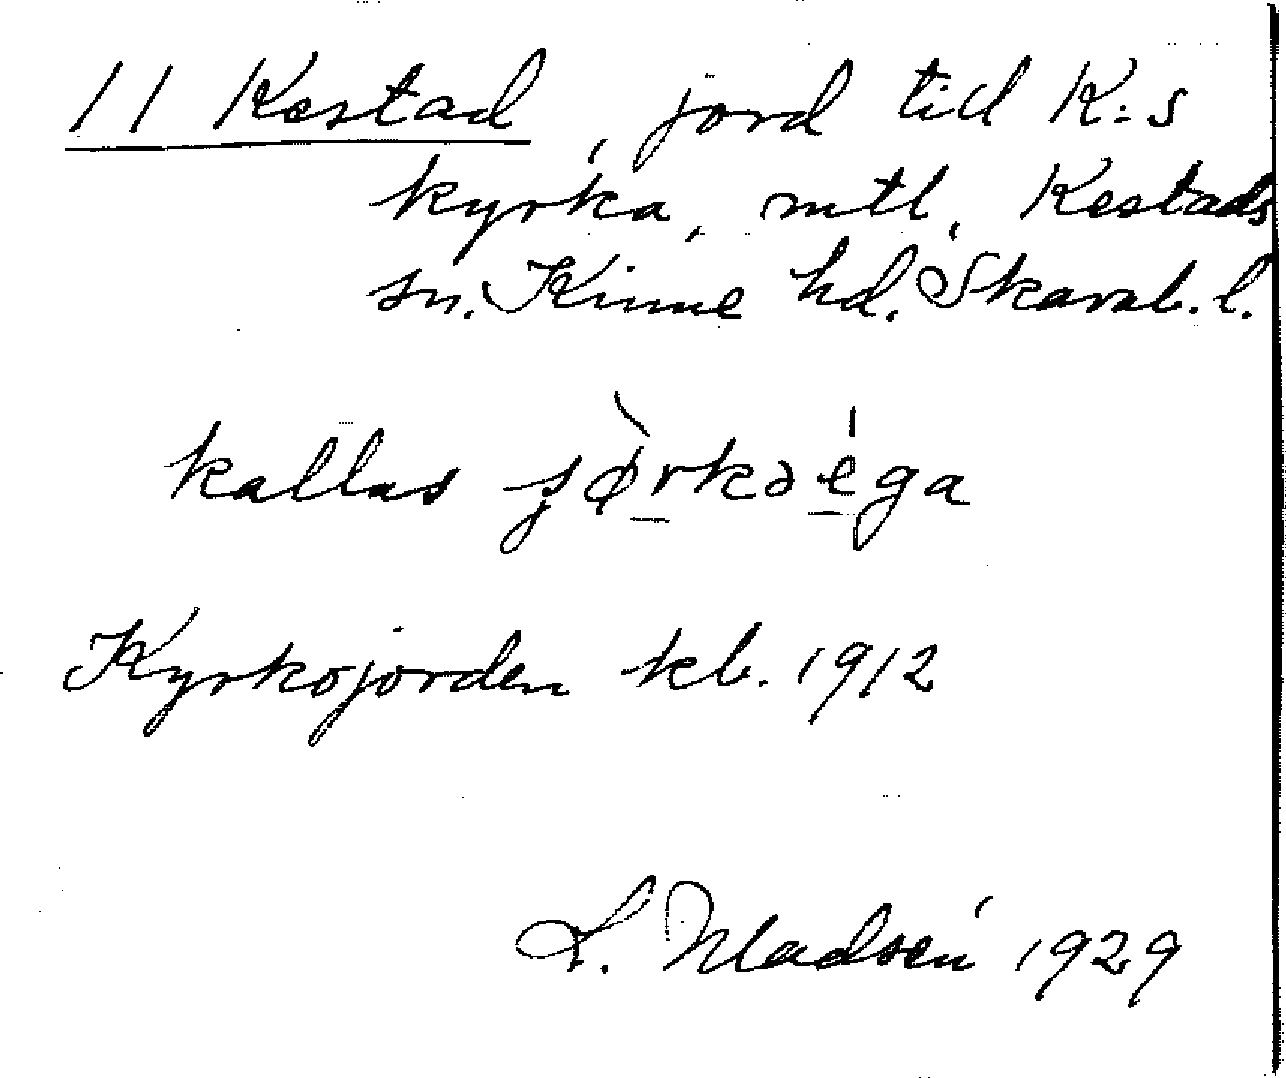 11 Kestad, jord till K:s
kyrka, mtl, Kestads
sn. Kinne hd. Skarab. l.
kallas
Kyrkojorden kb. 1912
1929